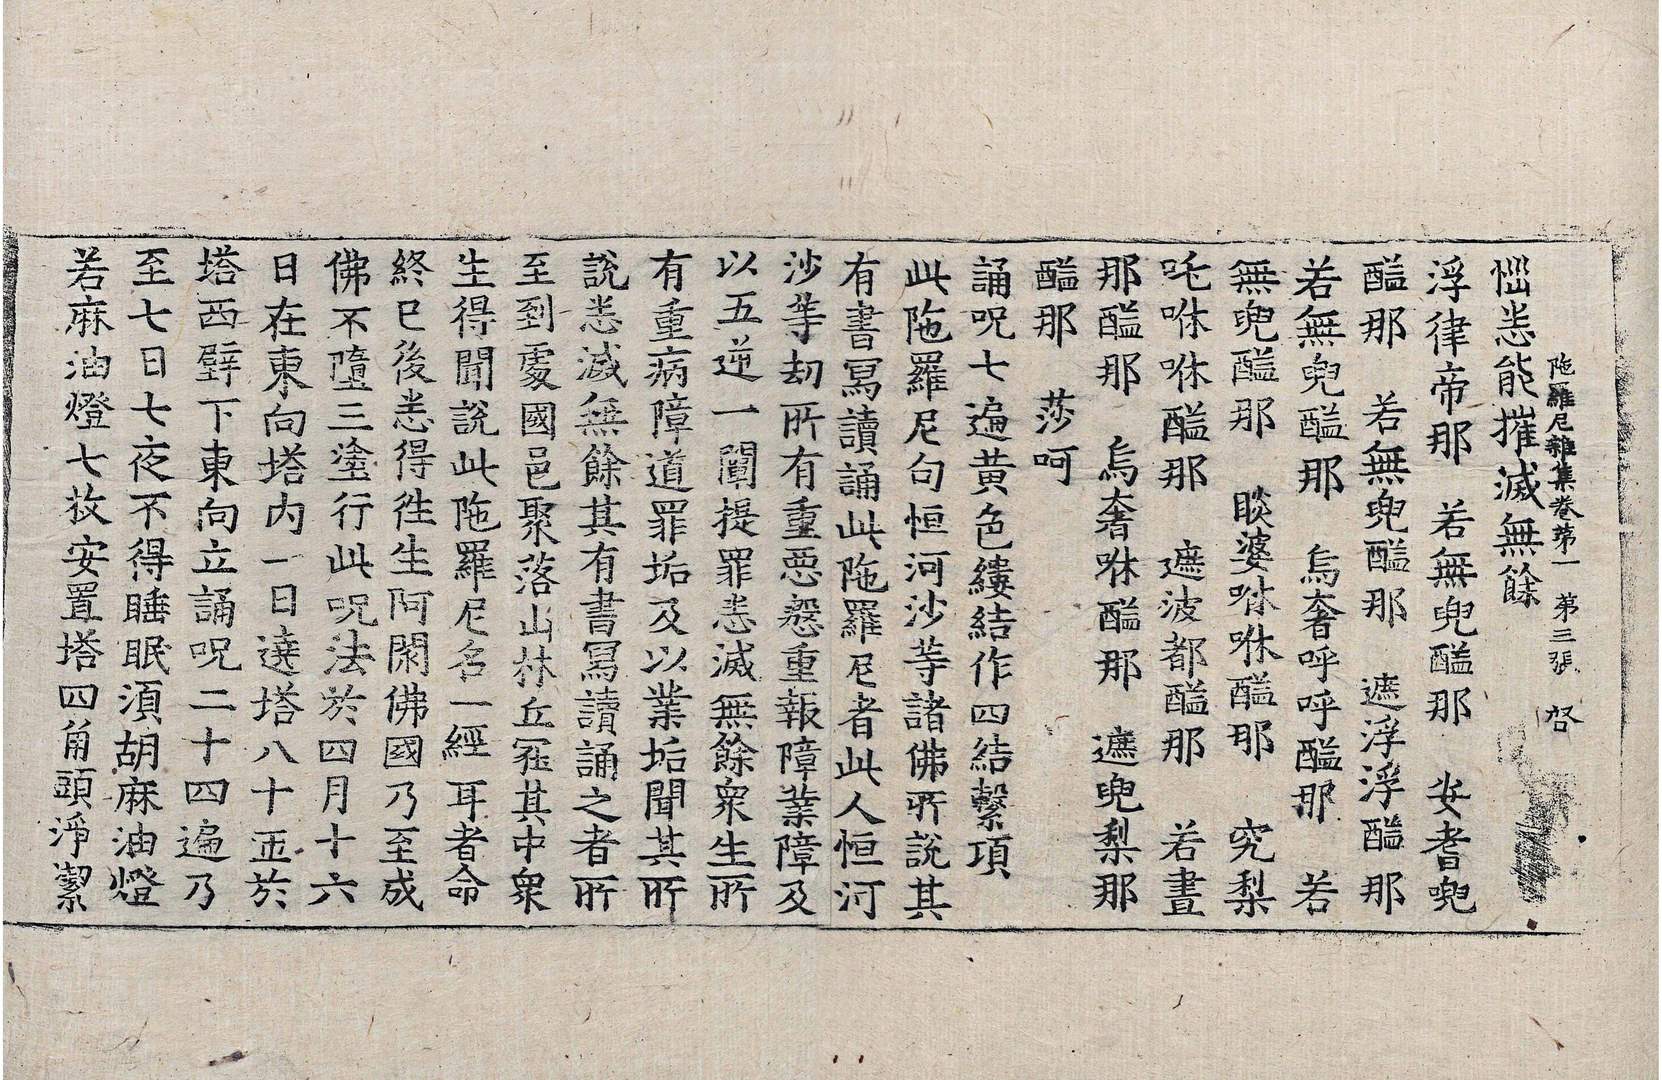 陁羅尼雜集卷苐一　第三張　
惱恙能摧滅無餘
浮律帝那　若無兜醯那　安耆兜
醯那　若無兜醯那　遮浮浮醯那
若無兜醯那　烏奢呼呼醯那　若
無兜醯那　睒婆咻咻醯那　究梨
吒咻咻醯那　遮波都醯那　若晝
那醯那　烏奢咻醯那　遮兜梨那
醯那　莎呵
誦呪七遍黃色縷結作四結繫項
此陁羅尼句恒河沙等諸佛所說其
有書寫讀誦此陁羅尼者此人恒河
沙等劫所有重惡怨重報障業障及
以五逆一闡提罪恙滅無餘衆生所
有重病障道罪垢及以業垢聞其所
說恙滅無餘其有書寫讀誦之者所
至到處國邑聚落山林丘冢其中衆
生得聞說此陁羅尼名一經耳者命
終已後恙得徃生阿閦佛國乃至成
佛不墮三塗行此呪法於四月十六
日在東向塔内一日遶塔八十迊於
塔西壁下東向立誦呪二十四遍乃
至七日七夜不得睡眠須胡麻油燈
若麻油燈七枚安置塔四角頭淨潔